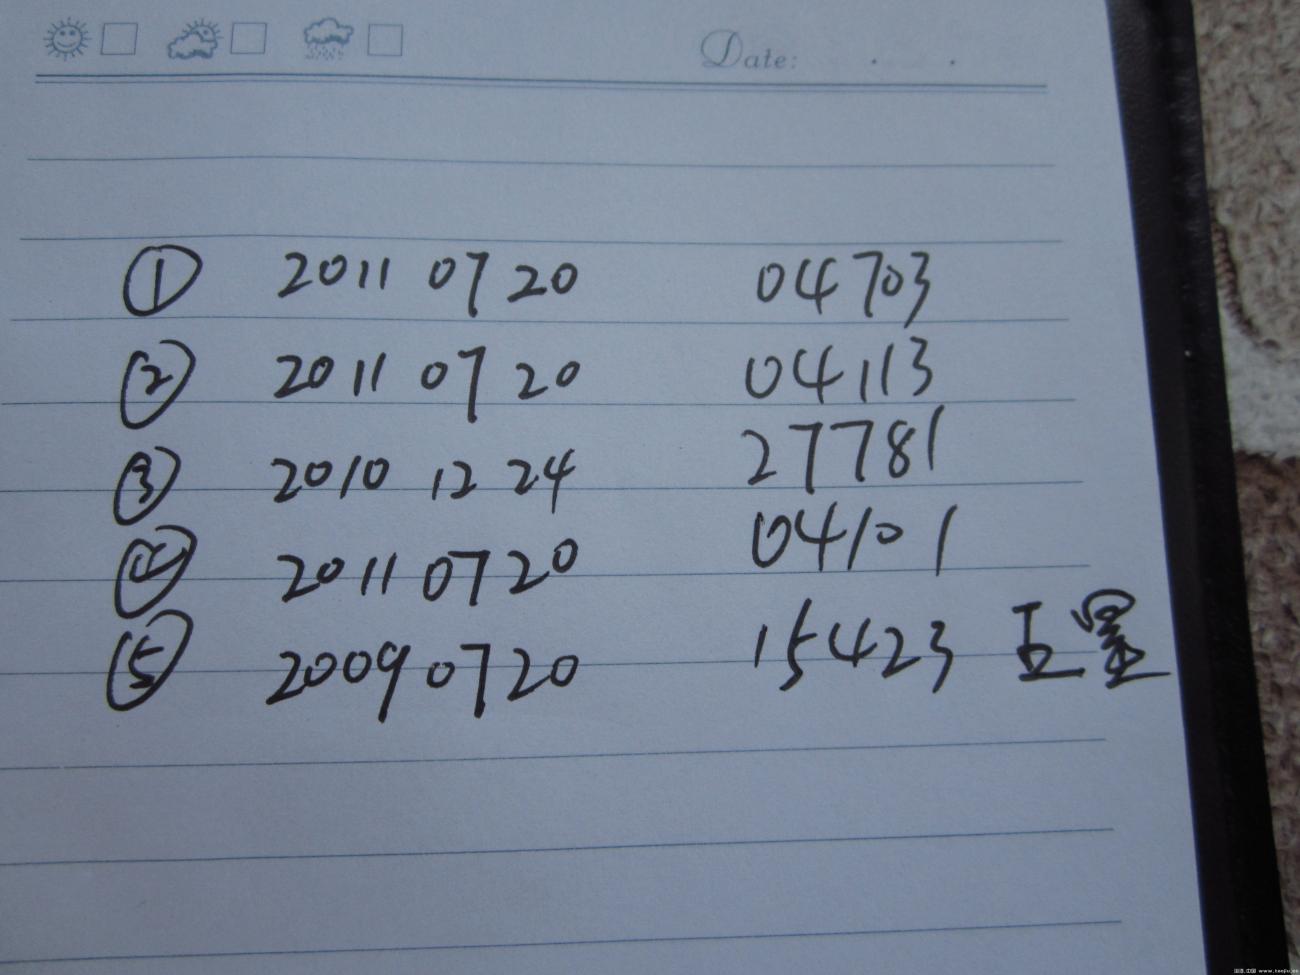 Date: . .
① 2011 07 20 04703
② 2011 07 20 04113
③ 2010 12 24 27781
④ 2011 07 20 04101
⑤ 2009 07 20 15423 五星